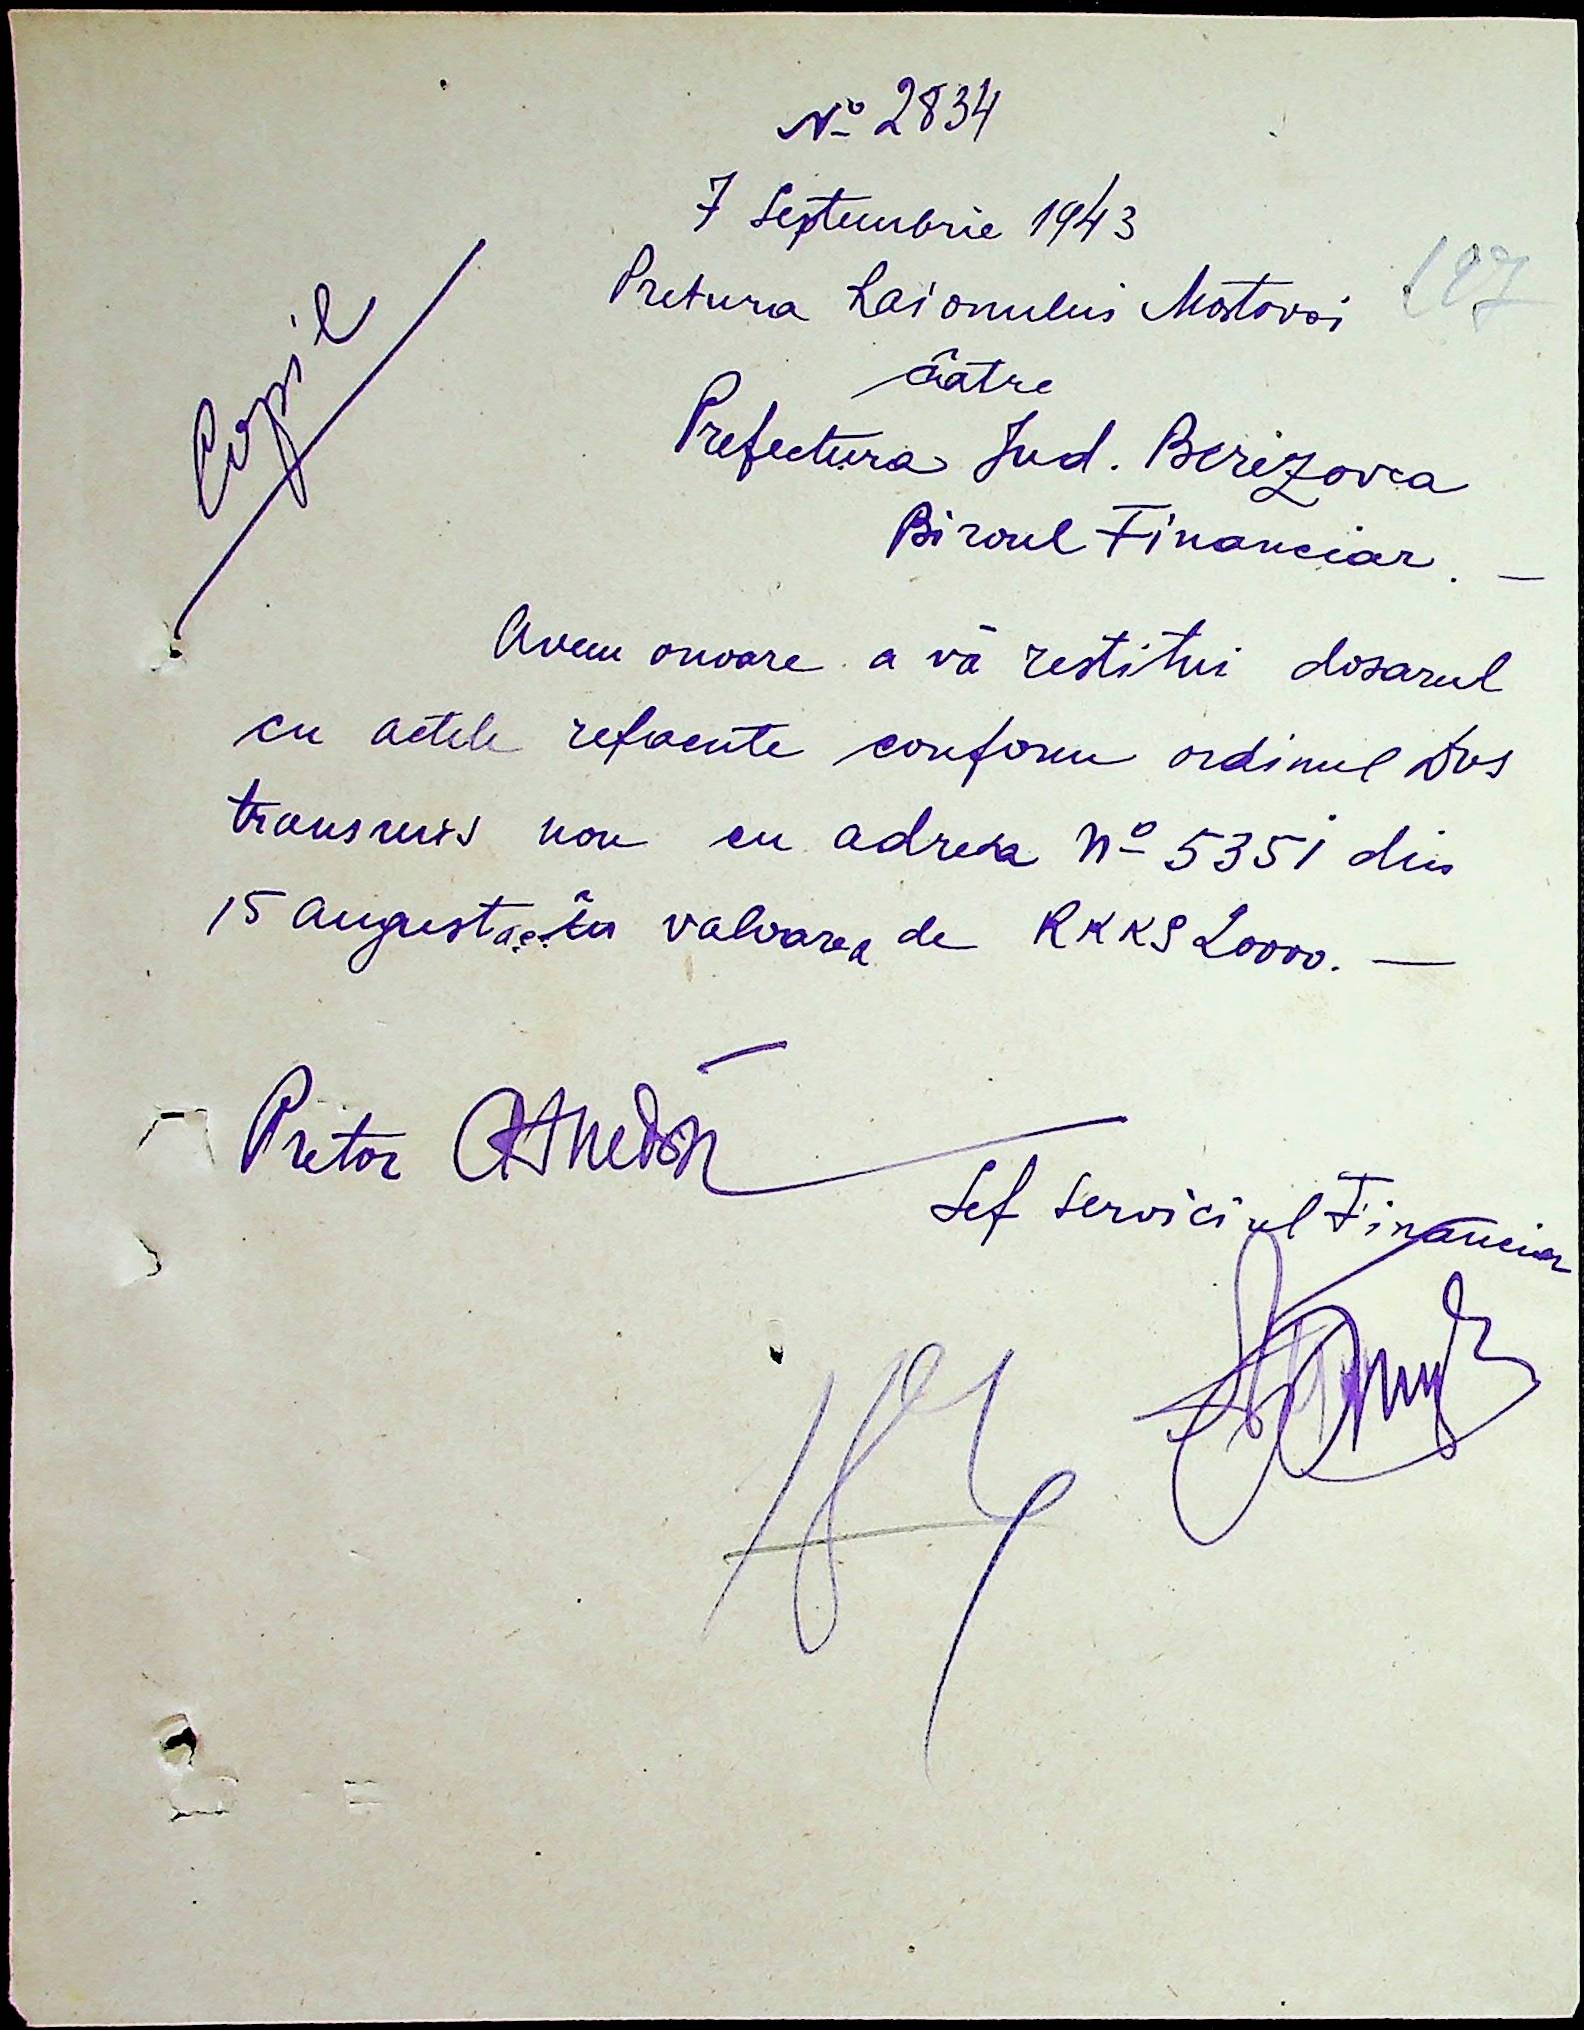 No 2834
7 Septembrie 1943
Pretura Raionului Mostovoi
127
către
Copil
Prefectura Jud. Berezovca
Biroul Financiar. —
Avem onoare a vă restitui dosarul
cu actele refacute conform ordinul Dvs
transmis nou cu adresa No 5351 din
15 august a.c. în valoarea de RKKS 20000. —
Pretor
Sef Serviciul Financiar